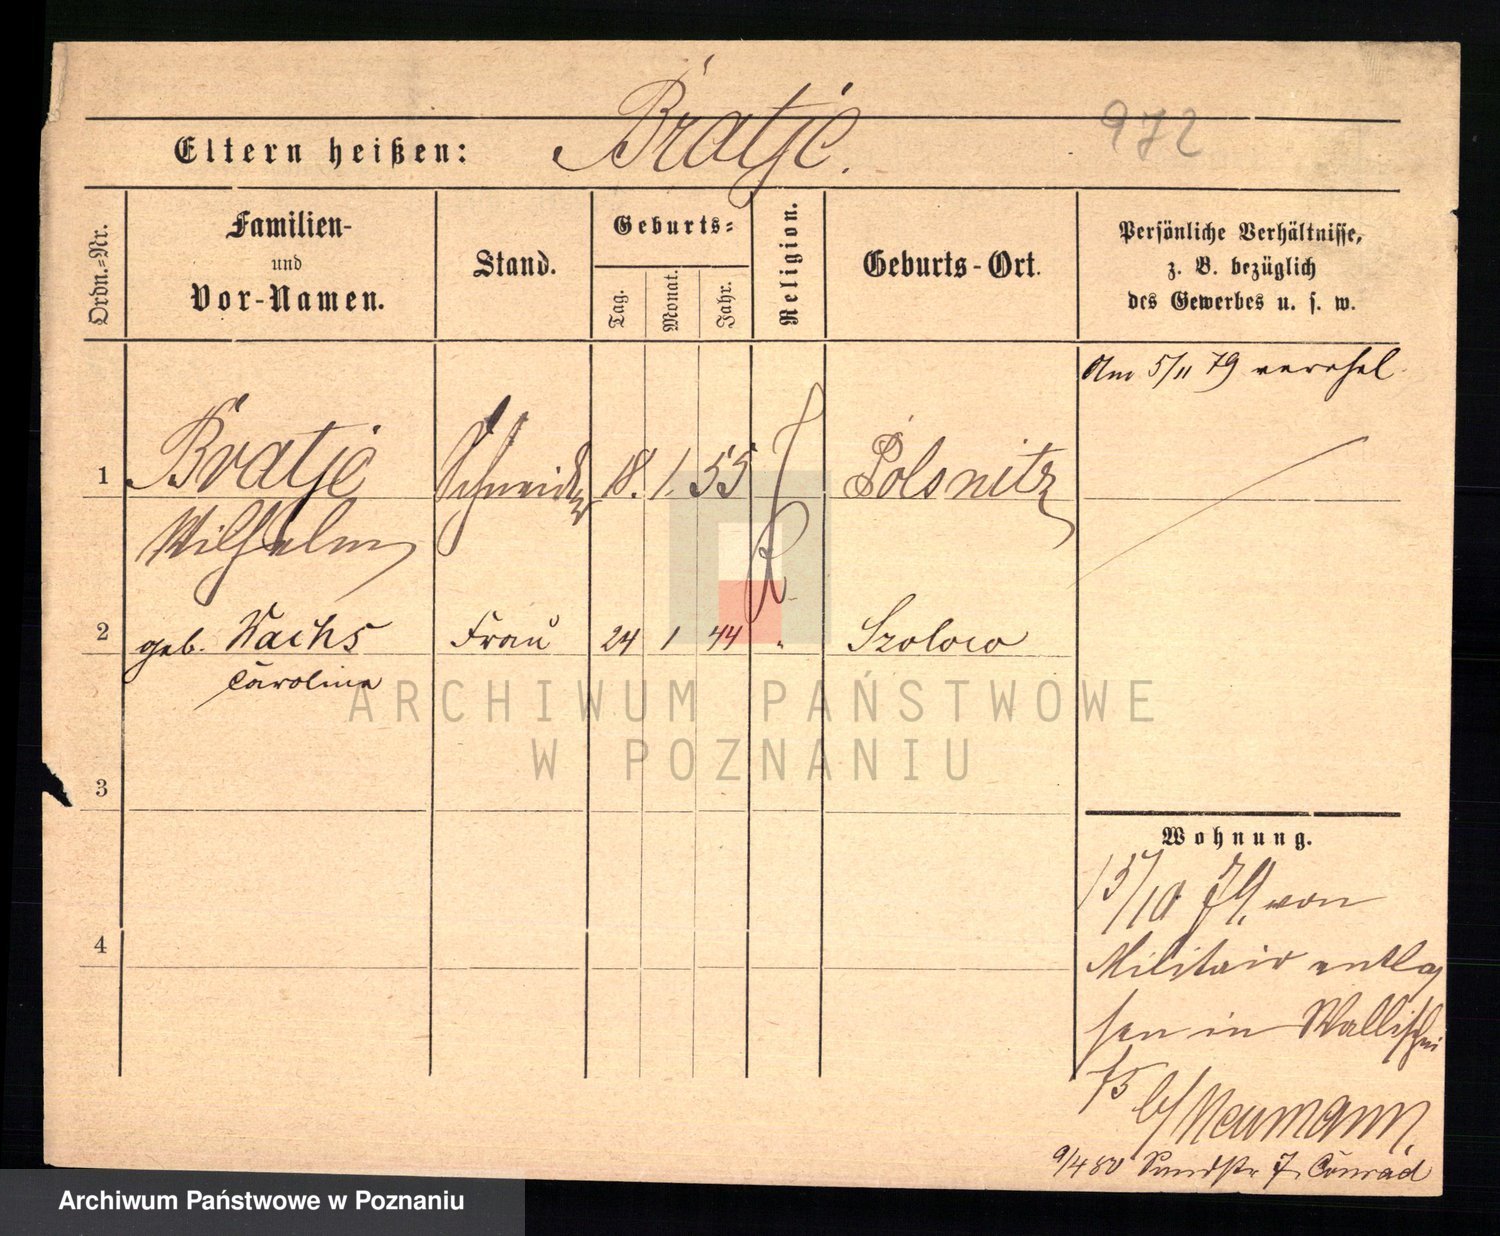 972
Eltern heißen: Bratje.
Ordn.=Nr.
Familien-
und
Vor-Namen.
Stand.
Geburts=
Tag.
Monat.
Jahr.
Religion.
Geburts-Ort.
Persönliche Verhältnisse,
z. B. bezüglich
des Gewerbes u. s. w.
Am 5/11 79 verehel.
1 Bratje Schneider 18. 1. 55 Polsnitz
Wilhelm
2 geb. Wachs Frau 24 1 44 " Szoloco
Carolina
3
4
Wohnung.
15/10 79. von
Militair entlas
sen in Wallischei
75 b/ Neumann.
9/4 80 7. Conrad
ARCHIWUM PAŃSTWOWE
W POZNANIU
Archiwum Państwowe w Poznaniu